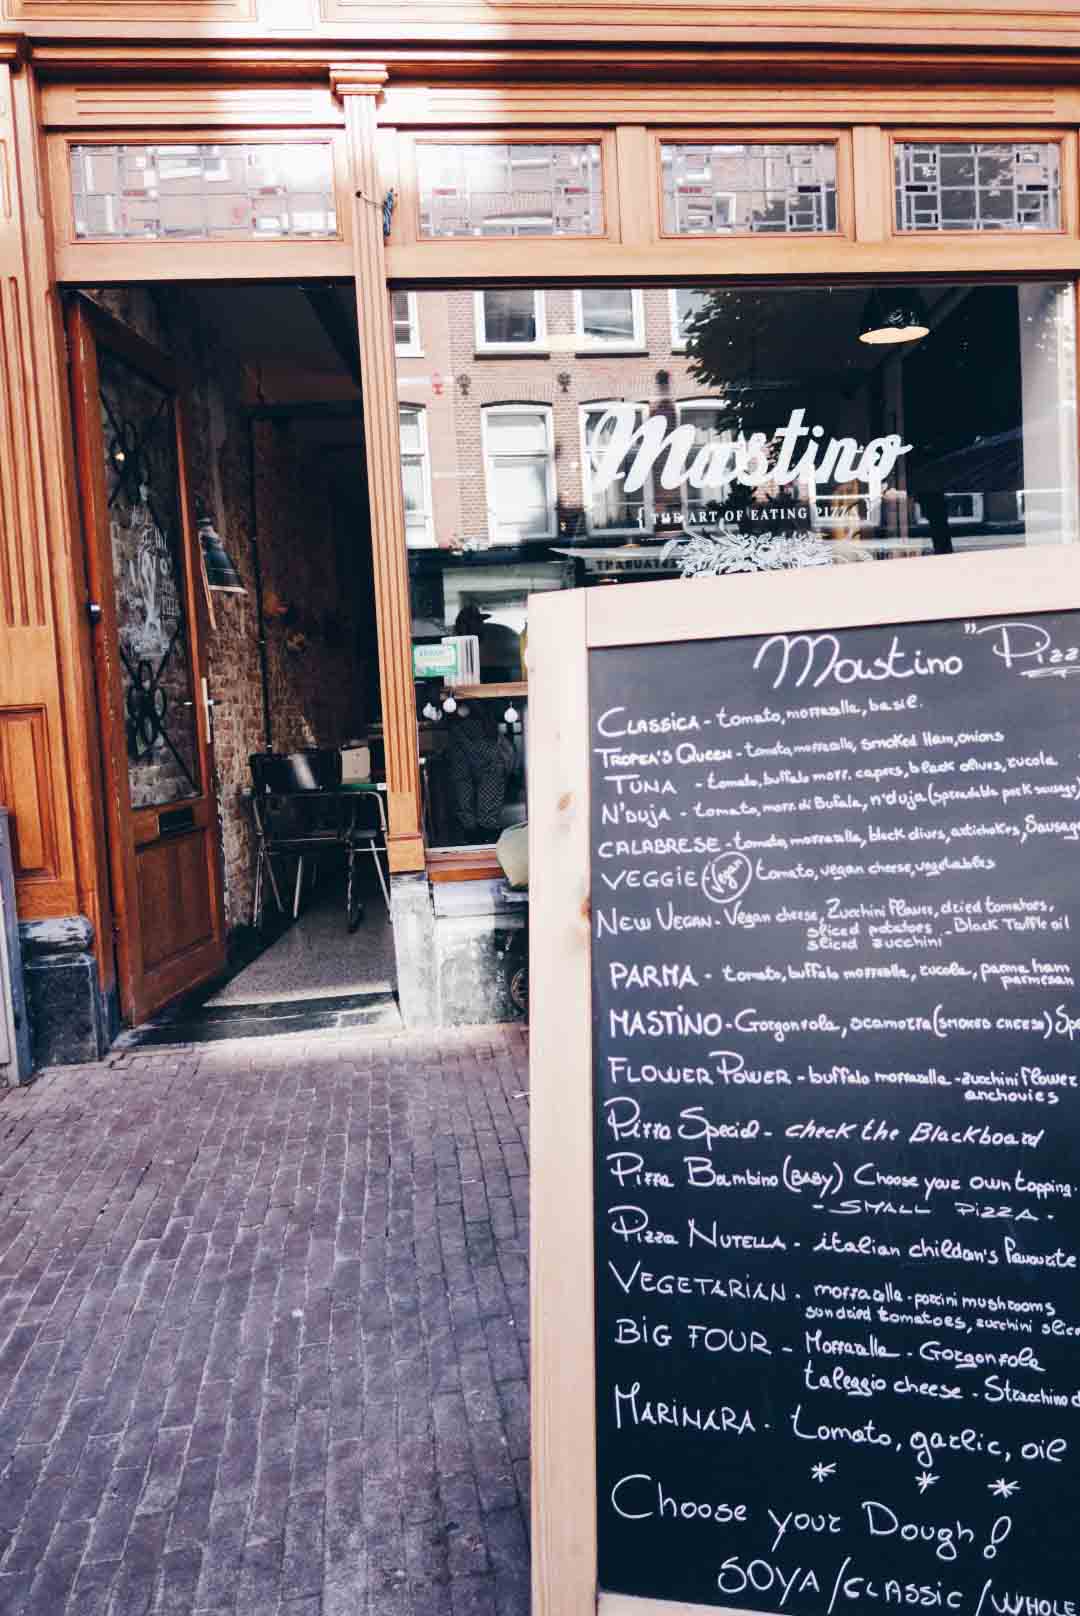 Mastino
{ THE ART OF EATING PIZZA }
Mastino "Pizz
CLASSICA - tomato, mozzarella, basil.
TROPEA'S QUEEN - tomato, mozzarella, smoked Ham, onions
TUNA - tomato, buffalo mozz. capres, black olives, rucola
N'DUJA - tomato, mozz. di Bufala, n'duja (spreadable pork sausage)
CALABRESE - tomato, mozzarella, black olives, artichokes, Sausage
VEGGIE (Vegan) tomato, vegan cheese, vegetables
NEW VEGAN - Vegan cheese, Zucchini flower, dried tomatoes,
sliced potatoes - Black Truffle oil
sliced zucchini
PARMA - tomato, buffalo mozzarella, rucola, parma ham
parmesan
MASTINO - Gorgonzola, scamorza (smoked cheese) Spe
FLOWER POWER - buffalo mozzarella - zucchini flower
anchovies
Pizza Special - check the Blackboard
Pizza Bambino (BABY) Choose your own topping.
- SMALL PIZZA -
Pizza NUTELLA - italian children's favourite
VEGETARIAN - mozzarella - porcini mushrooms
sundried tomatoes, zucchini slice
BIG FOUR - Mozzarella - Gorgonzola
taleggio cheese - Stracchino c
MARINARA - tomato, garlic, oil
* * *
Choose your Dough!
SOYA / CLASSIC / WHOLE